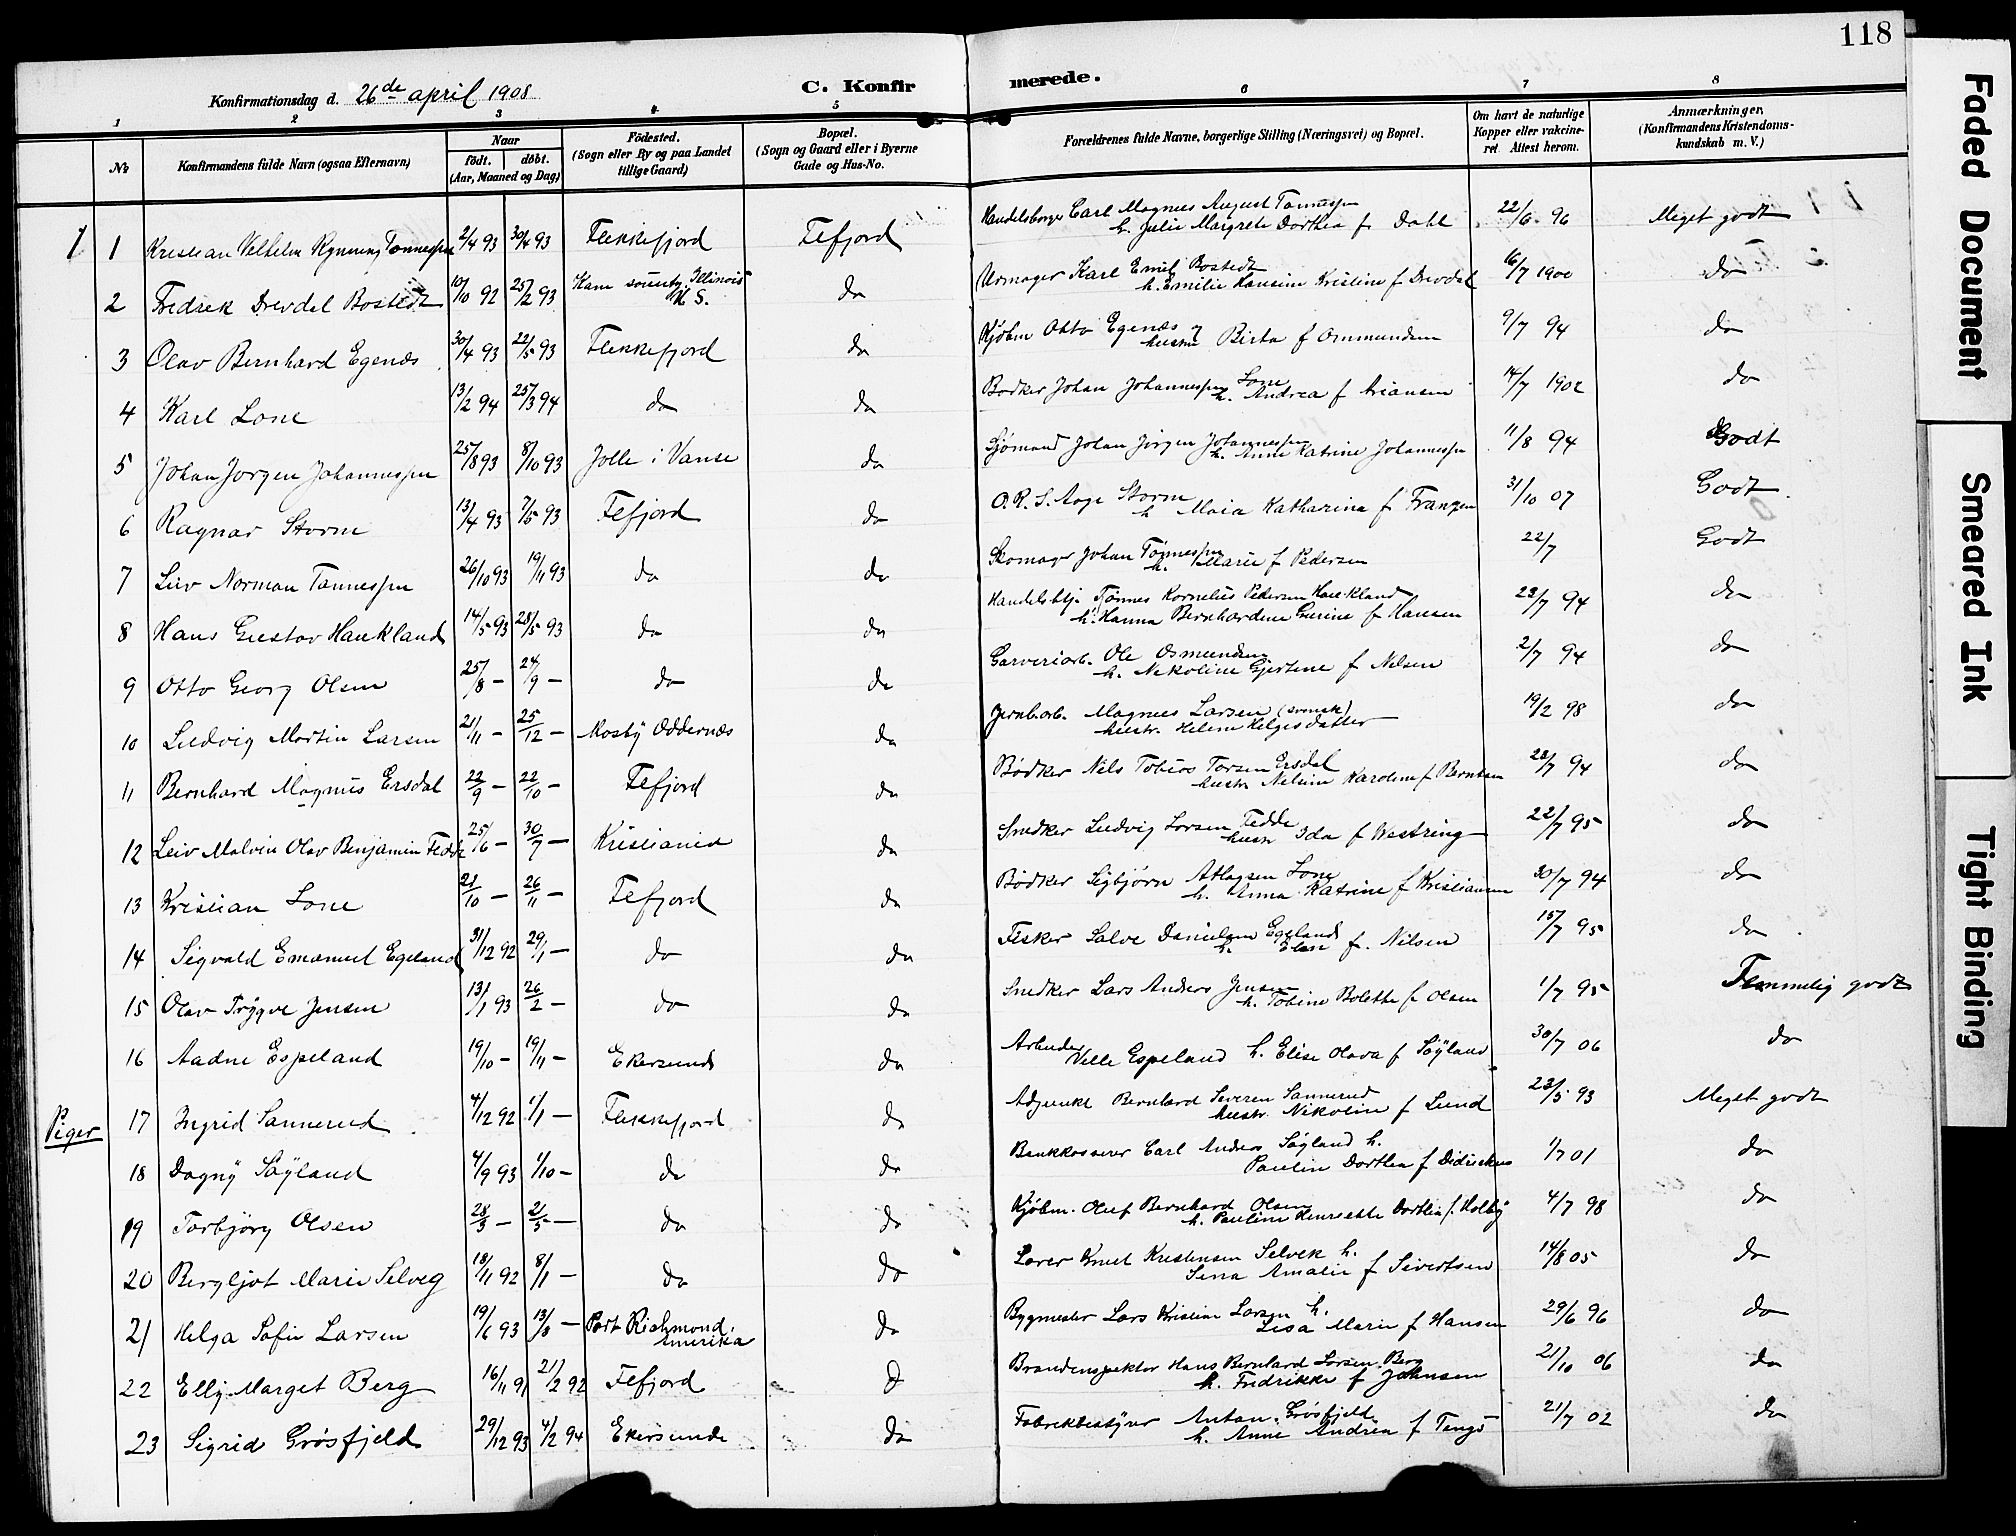 118
Konfirmationsdag d. 26de april 1908 C. Konfirmerede.
1 2 3 4 5 6 7 8
№ Konfirmandens fulde Navn (ogsaa Efternavn) Naar födt. döbt. (Aar, Maaned og Dag) Födested. (Sogn eller By og paa Landet tillige Gaard) Bopæl. (Sogn og Gaard eller i Byerne Gade og Hus-No. Forældrenes fulde Navne, borgerlige Stilling (Næringsvei) og Bopæl. Om havt de naturlige Kopper eller vakcineret. Attest herom. Anmærkninger, (Konfirmandens Kristendomskundskab m. V.)
1 Kristian Vilhelm Rynning Tønnessen 2/4 93 30/4 93 Flekkefjord Fefjord Handelsborger Carl Magnus August Tønnessen h. Julie Margrete Dorthea f Dahl 22/6 96 Meget godt
2 Fredrek Drevdal Bostedt 10/10 92 25/2 93 Kane county, Illinois do Urmager Karl Emil Bostedt h. Emilie Hansine Kristine f Drevdal 16/7 1900 do
3 Olav Bernhard Egenæs 30/4 93 22/5 93 Flekkefjord do Kjøbm Otto Egenæs og hustru Birta f Ommundsen 9/7 94 do
4 Karl Lone 13/2 94 25/3 94 do do Bødker Johan Johannessen Lone h. Andrea f Ariansen 14/7 1902 do
5 Johan Jørgen Johannessen 25/8 93 8/10 93 Jølle i Vanse do Sjømand Johan Jørgen Johannessen h. Anne Katrine Johannessen 11/8 94 Godt
6 Ragnar Storm 13/4 93 7/5 93 Fefjord do O.R.S. Aage Storm h Maia Katharina f Franzen 31/10 07 Godt
7 Leiv Norman Tønnessen 26/10 93 19/11 93 do do Skomager Johan Tønnessen h. Marie f Pedersen 22/7 Godt
8 Hans Gustav Haukland 14/5 93 28/5 93 do do Handelsbtj. Tønnes Kornelius Pedersen Haukland h. Hanna Bernhardine Gurine f Hansen 23/7 94 do
9 Otto Georg Olsen 25/8 - 24/9 - do do Garveriarb. Ole Osmundsen h. Nikoline Gjertine f Nilsen 2/7 94 do
10 Ludvig Martin Larsen 21/11 - 25/12 - Mosby Oddernæs do Jernb.arb. Magnus Larsen (svensk) hustr. Helene Helgesdatter 19/2 98 do
11 Bernhard Magnus Ersdal 22/9 - 22/10 - Fefjord do Bødker Nils Tobias Torsen Ersdal hustr Neline Karoline f Berntsen 28/7 94 do
12 Leiv Malvin Olav Benjamin Fedde 25/6 - 30/7 - Kristiania do Snedker Ludvig Larsen Fedde hustr Ida f Westring 22/7 95 do
13 Kristian Lone 21/10 - 26/11 - Fefjord do Bødker Sigbjørn Atlagsen Lone h. Anna Katrine f Kristiansen 30/7 94 do
14 Sigvald Emanuel Egeland 31/12 92 29/1 - do do Fisker Salve Danielsen Egeland h. Elen f. Nilsen 15/7 95 do
15 Olav Trygve Jensen 13/1 93 26/2 - do do Snedker Lars Anders Jensen h. Tobine Bolette f Olsen 1/7 95 Temmelig godt
16 Aadne Espeland 19/10 - 19/11 - Ekersund do Arbeider Ville Espeland h. Elise Olava f Søyland 30/7 06 do
Piger
17 Ingrid Sannerud 4/12 92 1/1 - Flekkefjord do Adjunkt Bernhard Severin Sannerud hustr. Nikolin f Lund 23/5 93 Meget godt
18 Dagny Søyland 4/9 93 1/10 - do do Bankkasserer Carl Anders Søyland h. Paulin Dorthea f Didriksen 1/7 01 do
19 Torbjørg Olsen 28/3 - 21/5 - do do Kjøbm. Oluf Bernhard Olsen h. Pauline Henriette Dorthea f. Holby 4/7 98 do
20 Bergljot Marie Selveg 18/11 92 8/1 - do do Lærer Knut Kristensen Selvek h. Sina Amalie f Sivertsen 14/8 05 do
21 Helga Sofie Larsen 19/6 93 13/8 - Port Richmond, Amerika do Bygmester Lars Kristian Larsen h. Lisa Marie f Hansen 29/6 96 do
22 Elly Marget Berg 16/11 91 21/2 92 Fefjord D Brandinspektør Hans Bernhard Larsen Berg h. Fredrikke f Johnsen 21/10 06 do
23 Sigrid Grøsfjeld 29/12 93 4/2 94 Ekersund do Fabrikbestyrer Anton Grøsfjeld h. Anne Andrea f Tengs 21/7 02 do
Faded Document
Smeared Ink
Tight Binding